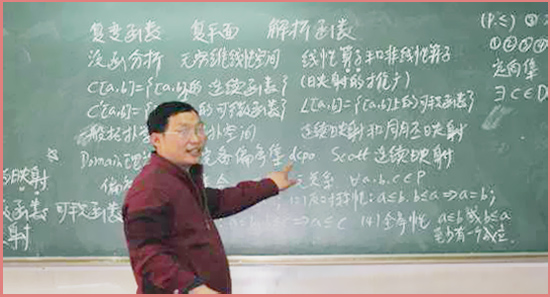 复变函数 复平面 解析函数
泛函分析 无穷维线性空间 线性算子和非线性算子
C[a,b]={[a,b]的连续函数} (映射的推广)
C'[a,b]= 的可微函数} L[a,b]={[a,b]上的可积函数}
一般拓扑 扑空间 连续映射和同胚映射
Domain理论 偏序集 dcpo Scott连续映射
偏 关系 ∀a,b,c∈P
反对称性: a≤b, b≤a⇒a=b;
⇒a≤c (4)全序性 a≤b或b≤a
至少有一个成立.
(P,≤)
①②③
④
定向集
∃c∈D
映射
函数 可微函数
射